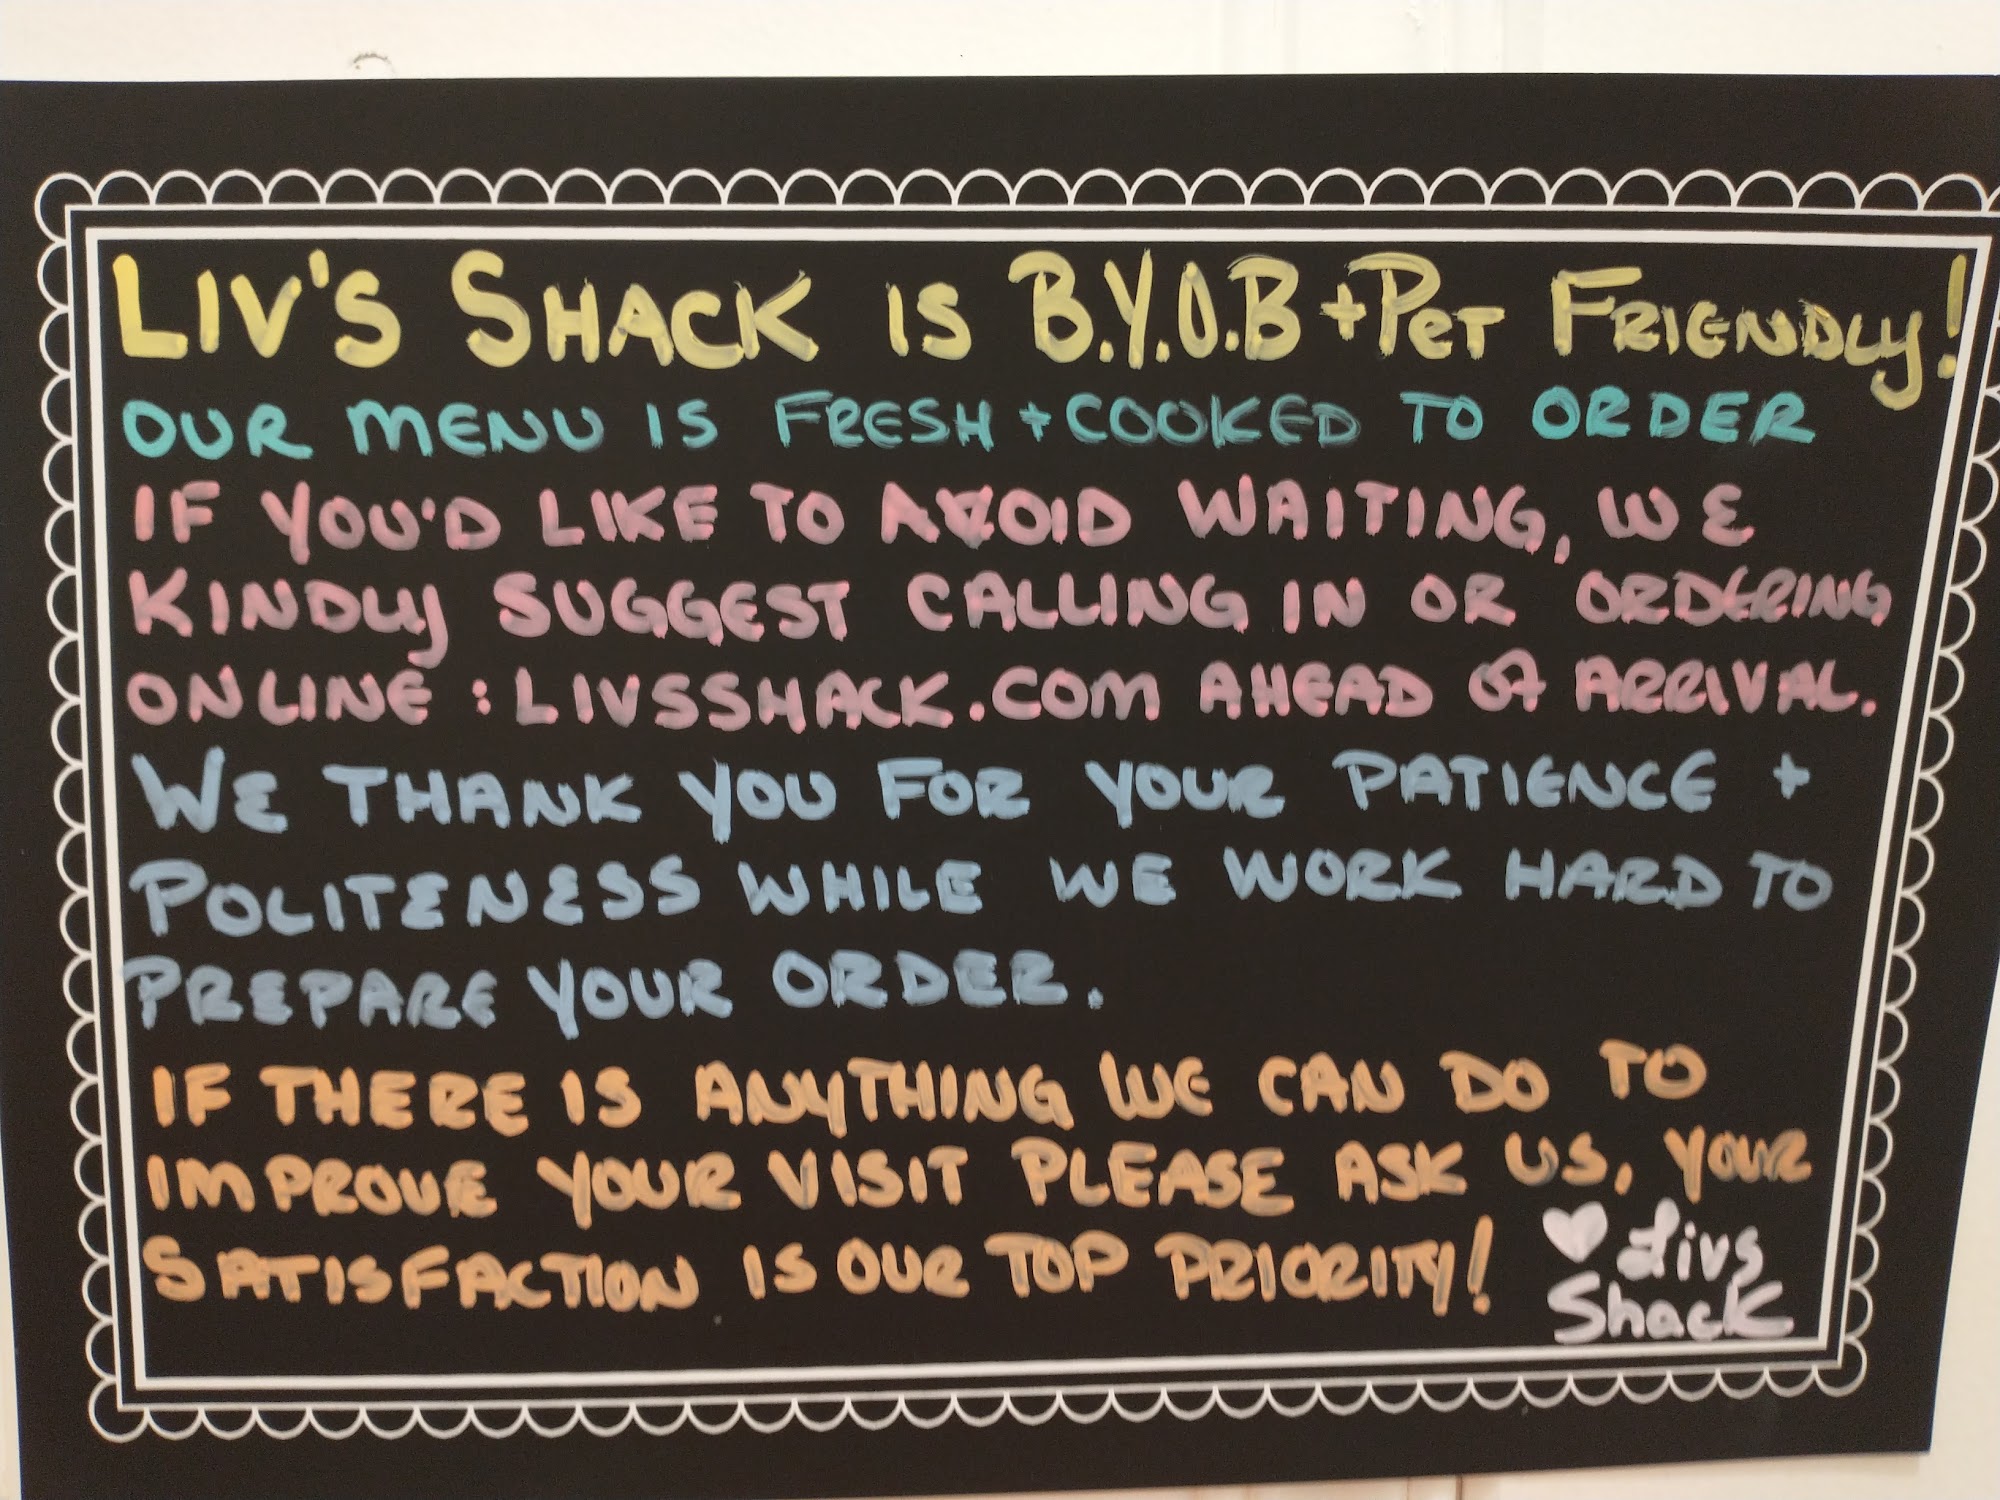 LIV'S SHACK IS B.Y.O.B + PET FRIENDLY!
OUR MENU IS FRESH + COOKED TO ORDER
IF YOU'D LIKE TO AVOID WAITING, WE
KINDLY SUGGEST CALLING IN OR ORDERING
ONLINE : LIVSSHACK.COM AHEAD OF ARRIVAL.
WE THANK YOU FOR YOUR PATIENCE +
POLITENESS WHILE WE WORK HARD TO
PREPARE YOUR ORDER.
IF THERE IS ANYTHING WE CAN DO TO
IMPROVE YOUR VISIT PLEASE ASK US, YOUR
SATISFACTION IS OUR TOP PRIORITY!
♥ Livs
Shack